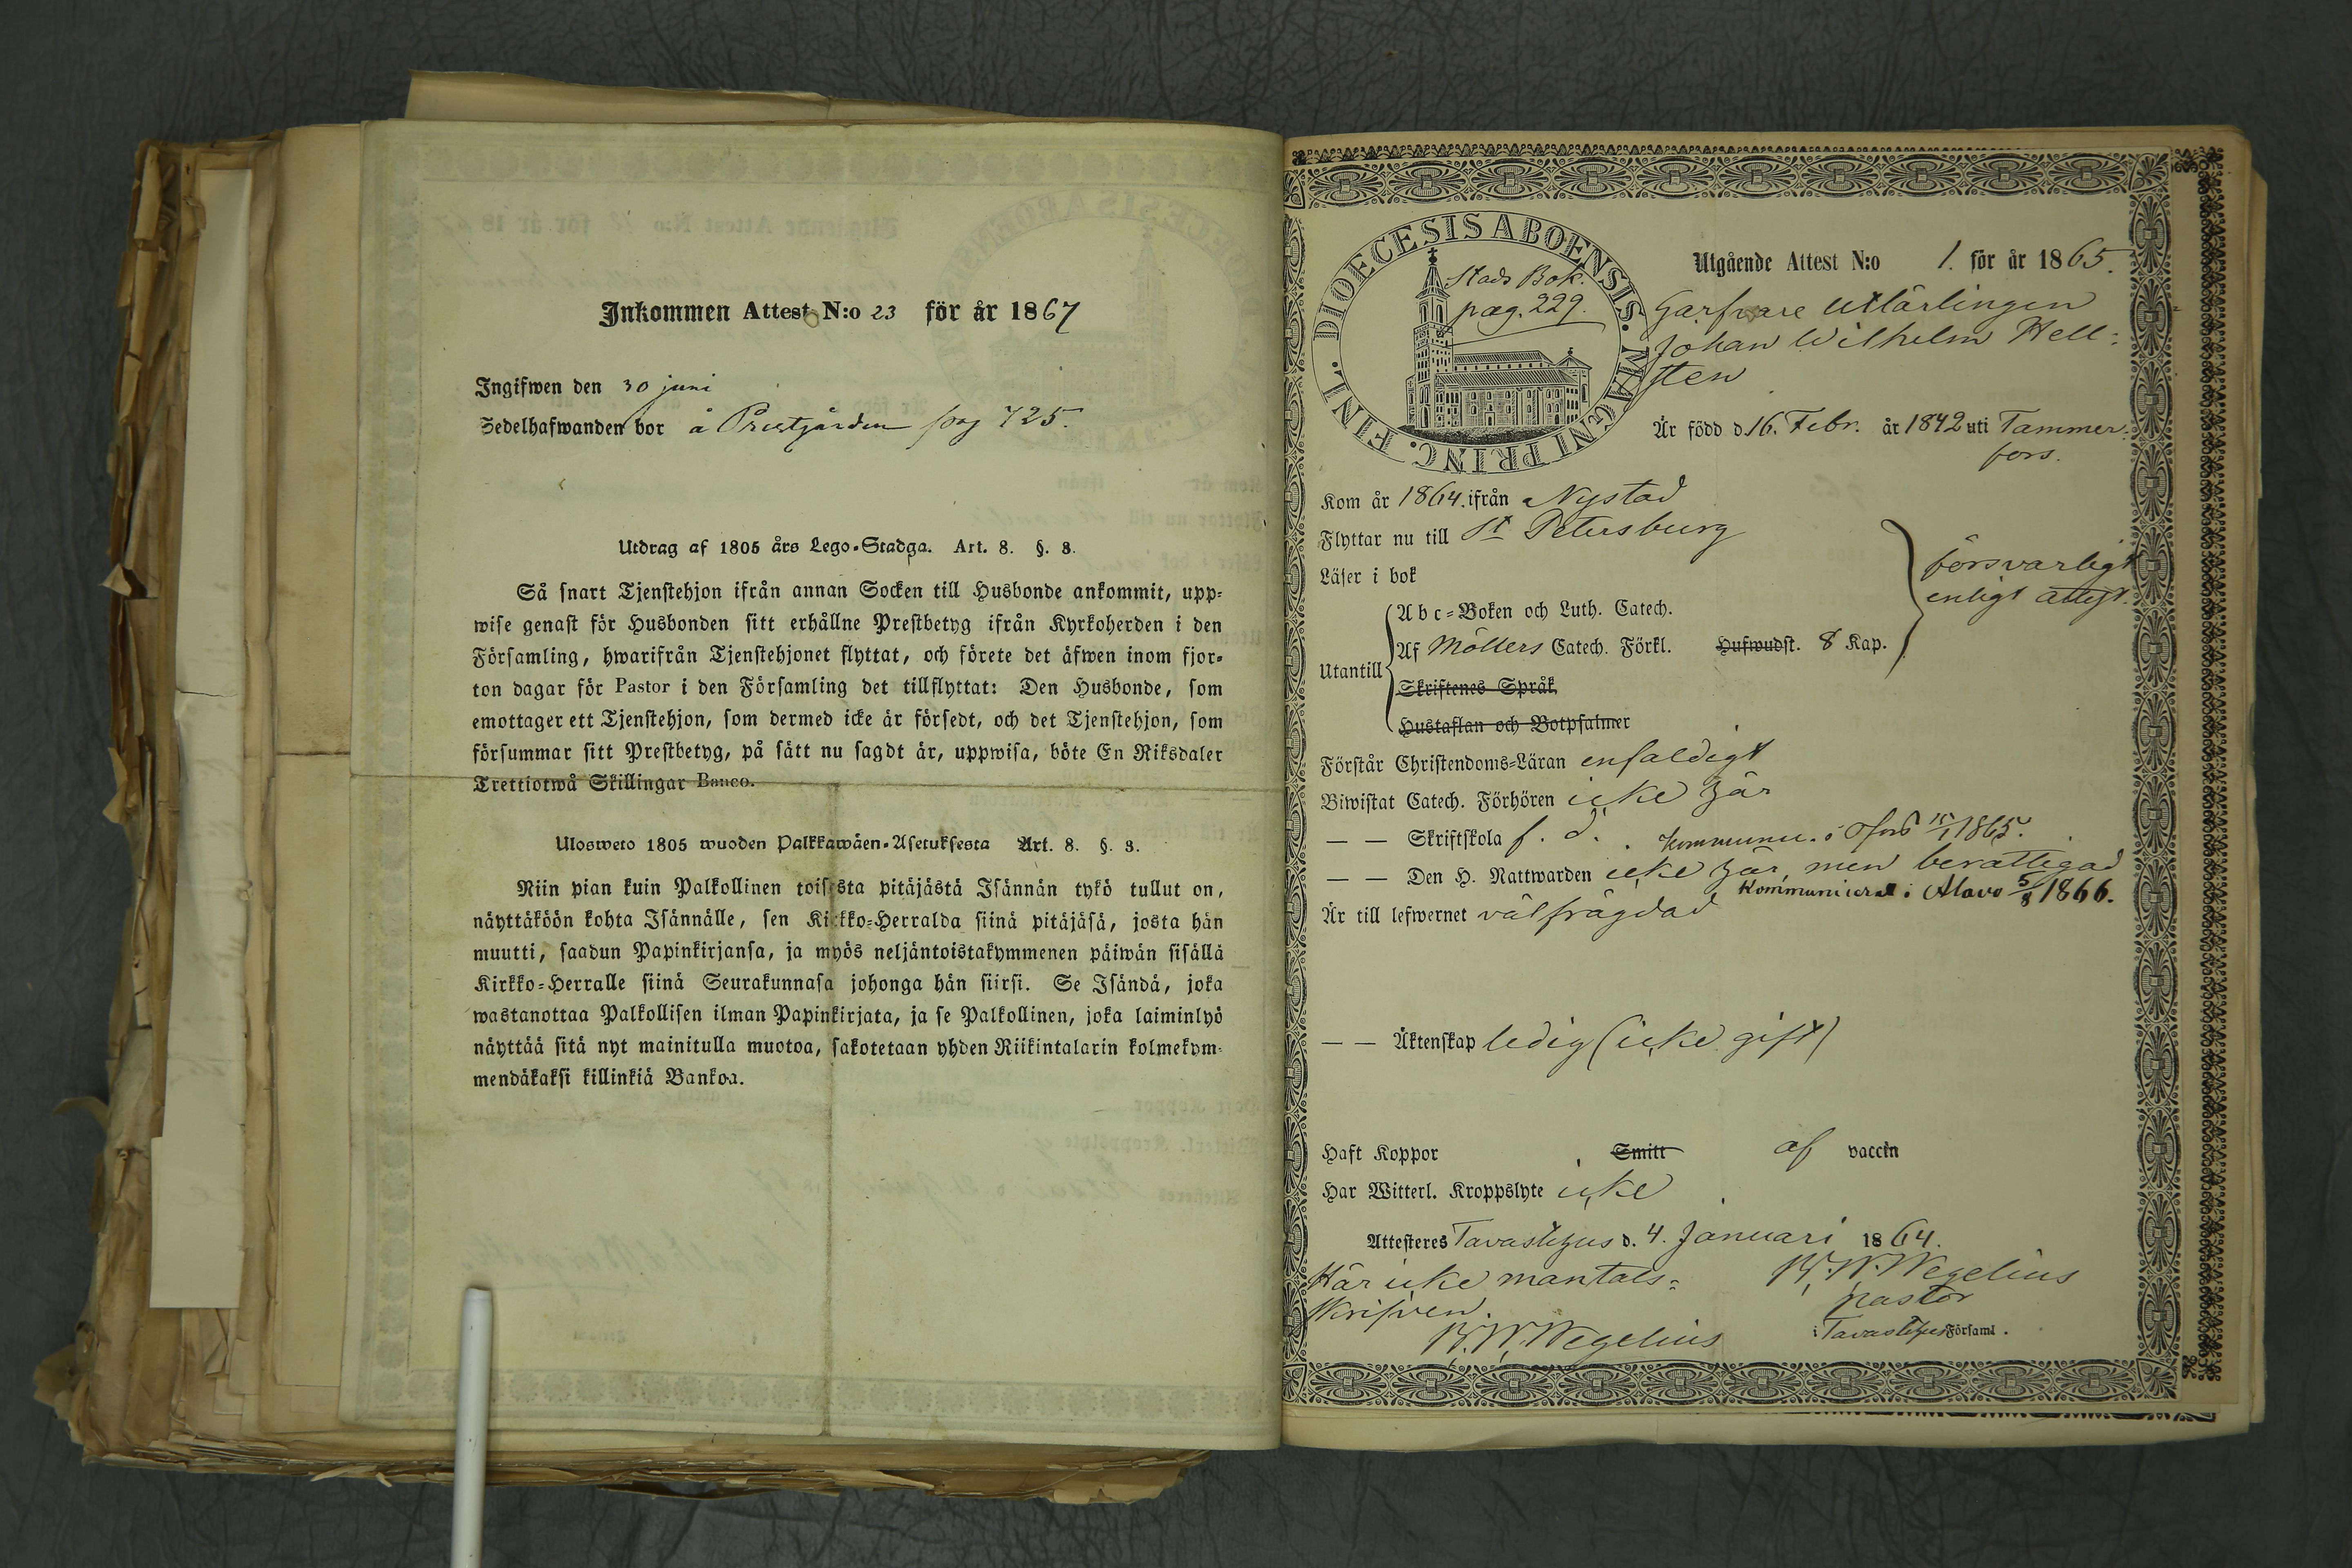 Inkommen Attest N:o 23 för år 1867
Ingifwen den 30 juni
Sedelhafwanden bor å Prestgården pag 725.
Utdrag af 1805 års Lego-Stadga. Art. 8. §. 3.
Så snart Tjenstehjon ifrån annan Socken till Husbonde ankommit, upp-
wise genast för Husbonden sitt erhållne Prestbetyg ifrån Kyrkoherden i den
Församling, hwarifrån Tjenstehjonet flyttat, och förete det äfwen inom fjor-
ton dagar för Pastor i den Församling det tillflyttat: Den Husbonde, som
emottager ett Tjenstehjon, som dermed icke är försedt, och det Tjenstehjon, som
försummar sitt Prestbetyg, på sätt nu sagdt är, uppwisa, böte En Riksdaler
Trettiotwå Skillingar Banco.
Ulosweto 1805 wuoden Palkkawäen-Asetuksesta Art. 8. §. 3.
Niin pian kuin Palkollinen toisesta pitäjästä Isännän tykö tullut on,
näyttäköön kohta Isännälle, sen Kirkko-Herralda siinä pitäjäsä, josta hän
muutti, saadun Papinkirjansa, ja myös neljäntoistakymmenen päiwän sisällä
Kirkko-Herralle siinä Seurakunnasa johonga hän siirsi. Se Isändä, joka
wastanottaa Palkollisen ilman Papinkirjata, ja se Palkollinen, joka laiminlyö
näyttää sitä nyt mainitulla muotoa, sakotetaan yhden Riikintalarin kolmekym-
mendäkaksi killinkiä Bankoa.
DIOECESIS ABOENSIS. MAGNI PRINC. FINL.
Stads Bok.
pag. 229.
Utgående Attest N:o 1. för år 1865.
Garfvare utlärlingen
Johan Wilhelm Hell-
sten
Är född d. 16. Febr. år 1842 uti Tammer-
fors.
Kom år 1864. ifrån Nystad
Flyttar nu till St Petersburg
Läser i bok
försvarligt
enligt attest.
Abc-Boken och Luth. Catech.
Utantill
Af Möllers Catech. Förkl. Hufwudst. 8 Kap.
Skriftenes Språk
Hustaflan och Botpsalmer
Förstår Christendoms-Läran enfaldigt
Biwistat Catech. Förhören icke här
— — Skriftskola f. d. kommunic. i 15/1 1865.
— — Den H. Nattwarden icke här, men berättigad
Kommunicerat i Alavo 5/8 1866.
Är till lefwernet välfrägdad
— — Äktenskap ledig (icke gift)
Haft Koppor Smitt af vaccin
Har Witterl. Kroppslyte icke
Attesteres Tavastehus d. 4. Januari 1864.
Här icke mantals-
skrifven.
B. W. Wegelius
B. W. Wegelius
pastor
i Tavastehus Församl.